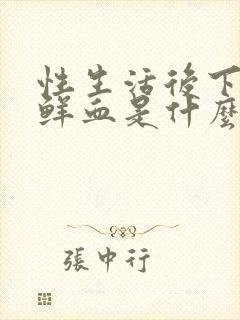 性生活後下
鮮血是什麼
張中行